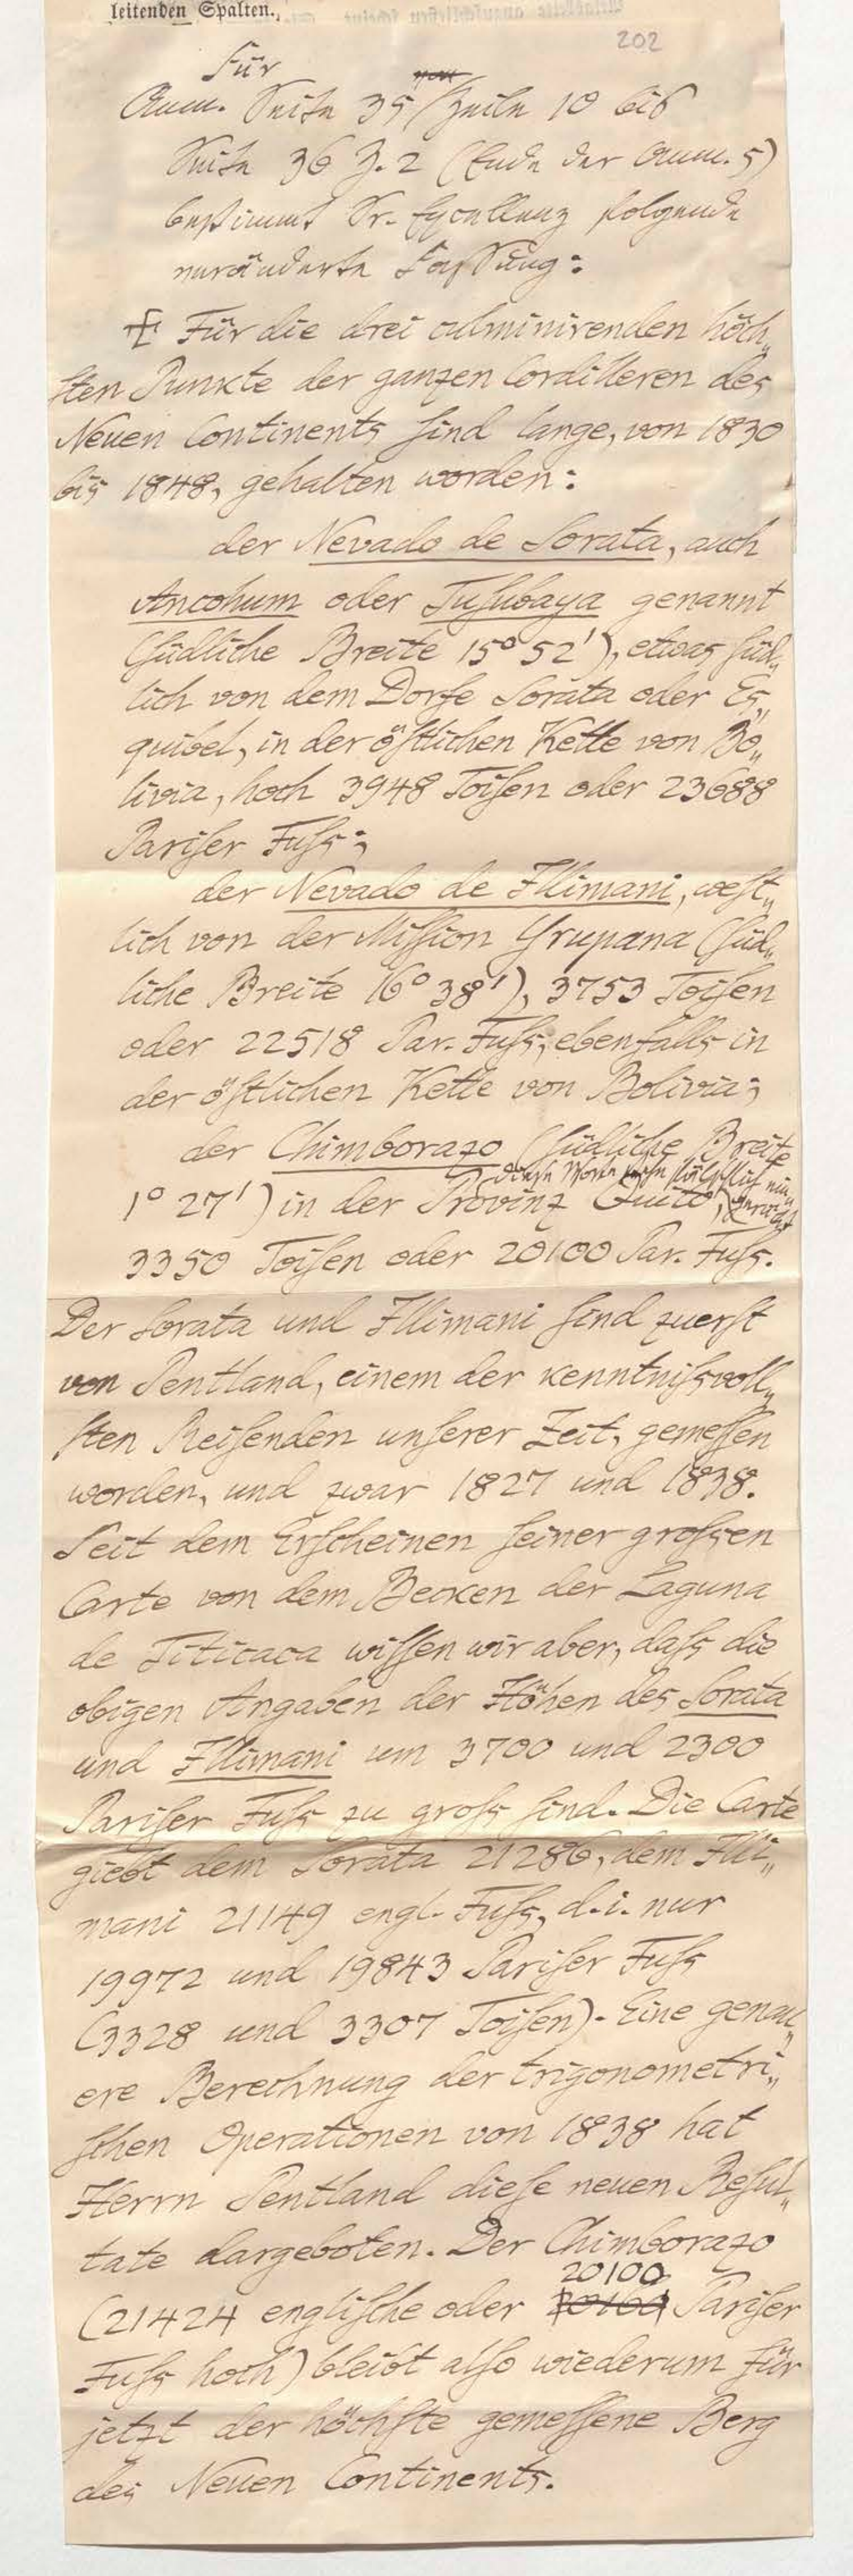 leitenden Spalten.
202
Für
Anm. Seite 35 Zeile 10 bis
Seite 36 Z. 2 (Ende der Anm. 5)
bestimmt Sr. Excellenz folgende
veränderte Fassung:
Für die drei culminirenden höch„
sten Punkte der ganzen Cordilleren des
Neuen Continents sind lange, von 1830
bis 1848, gehalten worden:
der Nevado de Sorata, auch
Ancohum oder Tusubaya genannt
(südliche Breite 15° 52'), etwas süd„
lich von dem Dorfe Sorata oder Es„
quibel, in der östlichen Kette von Bo„
livia, hoch 3948 Toisen oder 23688
Pariser Fuſs;
der Nevado de Illimani, west„
lich von der Mission Yrupana (süd„
liche Breite 16° 38'), 3753 Toisen
oder 22518 Par. Fuſs, ebenfalls in
der östlichen Kette von Bolivia;
der Chimborazo (südliche Breite
diese Worte fälschlich ein„
gerückt
1° 27') in der Provinz Quito,
3350 Toisen oder 20100 Par. Fuſs.
Der Sorata und Illimani sind zuerst
von Pentland, einem der kenntniſsvoll„
sten Reisenden unserer Zeit, gemessen
worden, und zwar 1827 und 1838.
Seit dem Erscheinen seiner groſsen
Carte von dem Becken der Laguna
de Titicaca wissen wir aber, daſs die
obigen Angaben der Höhen des Sorata
und Illimani um 3700 und 2300
Pariser Fuſs zu groſs sind. Die Carte
giebt dem Sorata 21286, dem Illi„
mani 21149 engl. Fuſs, d. i. nur
19972 und 19843 Pariser Fuſs
(3328 und 3307 Toisen). Eine genau„
ere Berechnung der trigonometri„
schen Operationen von 1838 hat
Herrn Pentland diese neuen Resul„
tate dargeboten. Der Chimborazo
20100
(21424 englische oder Pariser
Fuſs hoch) bleibt also wiederum für
jetzt der höchste gemessene Berg
des Neuen Continents.